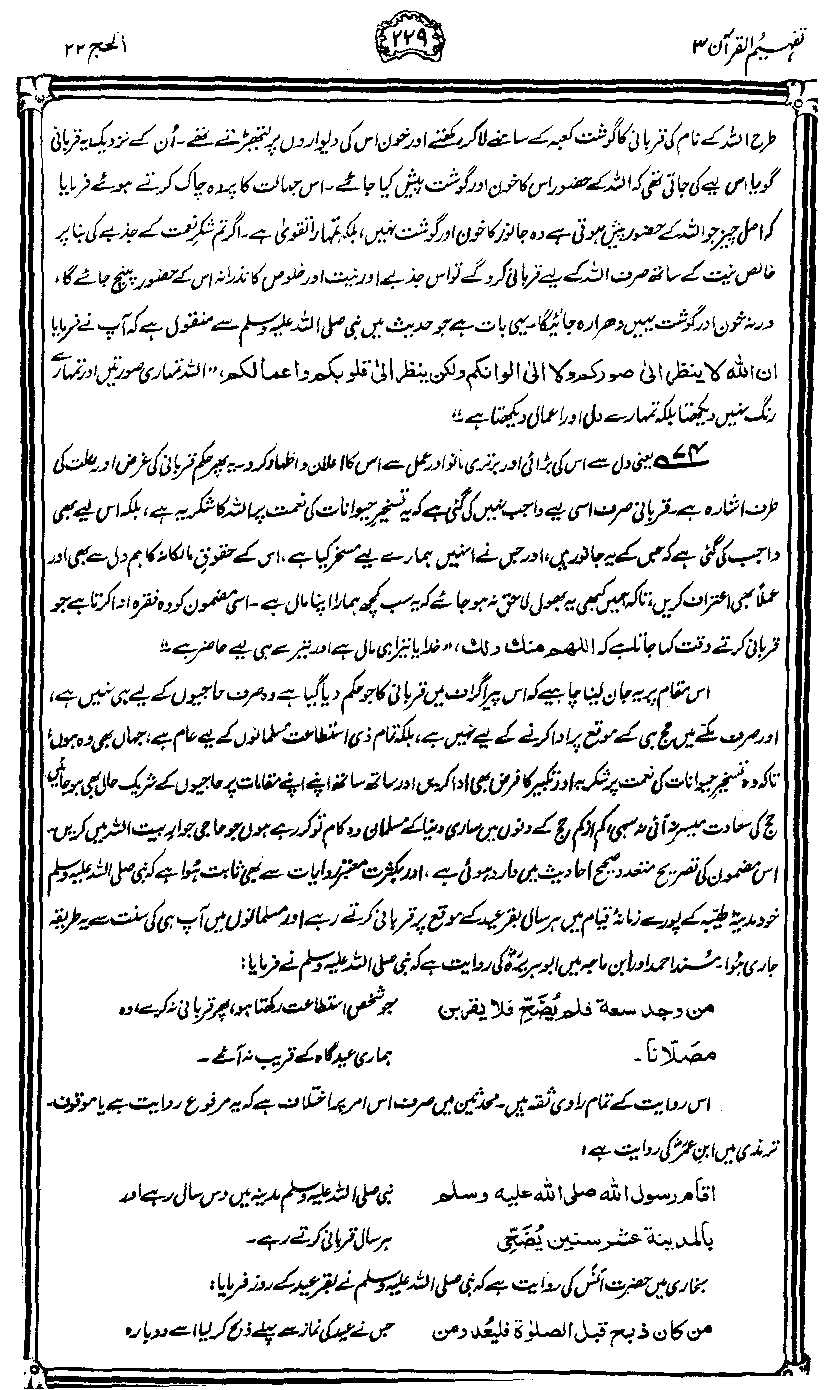 تفہیم القرآن ۳
۲۲۹
الحج ۲۲
طرح اللہ کے نام کی قربانی کا گوشت کعبہ کے سامنے لا کر رکھتے اور خون اس کی دیواروں پر لتھیڑتے تھے۔ اُن کے نزدیک یہ قربانی
گویا اس لیے کی جاتی تھی کہ اللہ کے حضور اس کا خون اور گوشت پیش کیا جائے۔ اس جہالت کا پردہ چاک کرتے ہوئے فرمایا
کہ اصل چیز جو اللہ کے حضور پیش ہوتی ہے وہ جانور کا خون اور گوشت نہیں، بلکہ تمہارا تقویٰ ہے۔ اگر تم شکر نعمت کے جذبے کی بنا پر
خالص نیت کے ساتھ صرف اللہ کے لیے قربانی کرو گے تو اس جذبے اور نیت اور خلوص کا نذرانہ اس کے حضور پہنچ جائے گا،
ورنہ خون اور گوشت یہیں دھرا رہ جائیگا۔ یہی بات ہے جو حدیث میں نبی صلی اللہ علیہ وسلم سے منقول ہے کہ آپ نے فرمایا
ان اللہ لا ینظر الیٰ صورکم ولا الیٰ الوانکم ولکن ینظر الیٰ قلوبکم واعمالکم، "اللہ تمہاری صورتیں اور تمہارے
رنگ نہیں دیکھتا بلکہ تمہارے دل اور اعمال دیکھتا ہے"
۷۴ یعنی دل سے اس کی بڑائی اور برتری مانو اور عمل سے اس کا اعلان و اظہار کرو۔ یہ پھر حکم قربانی کی غرض اور علت کی
طرف اشارہ ہے۔ قربانی صرف اسی لیے واجب نہیں کی گئی ہے کہ یہ تسخیر حیوانات کی نعمت پر اللہ کا شکریہ ہے، بلکہ اس لیے بھی
واجب کی گئی ہے کہ جس کے یہ جانور ہیں، اور جس نے انہیں ہمارے لیے مسخر کیا ہے، اس کے حقوقِ مالکانہ کا ہم دل سے بھی اور
عملاً بھی اعتراف کریں، تاکہ ہمیں کبھی یہ بھول لاحق نہ ہو جائے کہ یہ سب کچھ ہمارا اپنا مال ہے۔ اسی مضمون کو وہ فقرہ ادا کرتا ہے جو
قربانی کرتے وقت کہا جاتا ہے کہ اللھم منک ولک، "خدایا تیرا ہی مال ہے اور تیرے ہی لیے حاضر ہے"
اس مقام پر یہ جان لینا چاہیے کہ اس پیراگراف میں قربانی کا جو حکم دیا گیا ہے وہ صرف حاجیوں کے لیے ہی نہیں ہے،
اور صرف مکے میں حج ہی کے موقع پر ادا کرنے کے لیے نہیں ہے، بلکہ تمام ذی استطاعت مسلمانوں کے لیے عام ہے، جہاں بھی وہ ہوں،
تاکہ وہ تسخیر حیوانات کی نعمت پر شکریہ اور تکبیر کا فرض بھی ادا کریں اور ساتھ ساتھ اپنے اپنے مقامات پر حاجیوں کے شریک حال بھی ہو جائیں
حج کی سعادت میسر نہ آئی نہ سہی، کم از کم حج کے دنوں میں ساری دنیا کے مسلمان وہ کام تو کر رہے ہوں جو حاجی جوارِ بیت اللہ میں کریں۔
اس مضمون کی تصریح متعدد صحیح احادیث میں وارد ہوئی ہے، اور بکثرت معتبر روایات سے بھی ثابت ہُوا ہے کہ نبی صلی اللہ علیہ وسلم
خود مدینۂ طیبہ کے پورے زمانۂ قیام میں ہر سال بقر عید کے موقع پر قربانی کرتے رہے اور مسلمانوں میں آپ ہی کی سنت سے یہ طریقہ
جاری ہُوا۔ مُسند احمد اور ابن ماجہ میں ابوہریرہؓ کی روایت ہے کہ نبی صلی اللہ علیہ وسلم نے فرمایا:
من وجد سعة فلم یُضَحِّ فلا یقربن
جو شخص استطاعت رکھتا ہو، پھر قربانی نہ کرے، وہ
مصلّانا۔
ہماری عیدگاہ کے قریب نہ آئے۔
اس روایت کے تمام راوی ثقہ ہیں۔ محدثین میں صرف اس امر پر اختلاف ہے کہ یہ مرفوع روایت ہے یا موقوف۔
ترمذی میں ابن عمرؓ کی روایت ہے:
اقام رسول اللہ صلی اللہ علیه وسلم
نبی صلی اللہ علیہ وسلم مدینہ میں دس سال رہے اور
بالمدینة عشر سنین یُضَحِّی
ہر سال قربانی کرتے رہے۔
بخاری میں حضرت انسؓ کی روایت ہے کہ نبی صلی اللہ علیہ وسلم نے بقر عید کے روز فرمایا:
من کان ذبح قبل الصلوٰة فلیُعد ومن
جس نے عید کی نماز سے پہلے ذبح کر لیا اسے دوبارہ